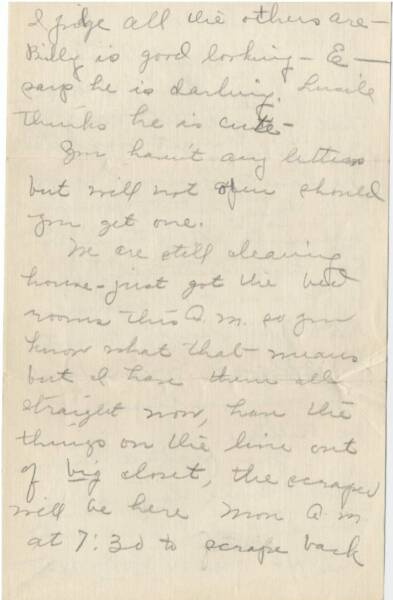 I judge all the others are –
Billy is good looking – E –
says he is darling. Lucile
thinks he is cute –
You havn't any letters
but will not open should
you get one.
We are still cleaning
house – just got the bed
rooms this A.M. so you
know what that means
but I have them all
straight now, have the
things on the line out
of big closet, the scraper
will be here Mon A.M
at 7:30 to scrape back